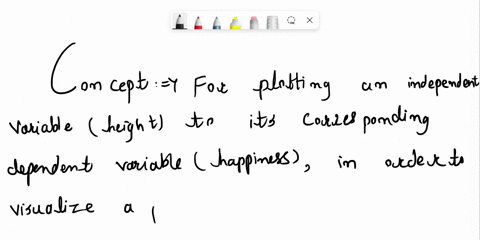 Concept :=> For plotting an independent
variable (height) to its corresponding
dependent variable (happiness), in order to
visualize a